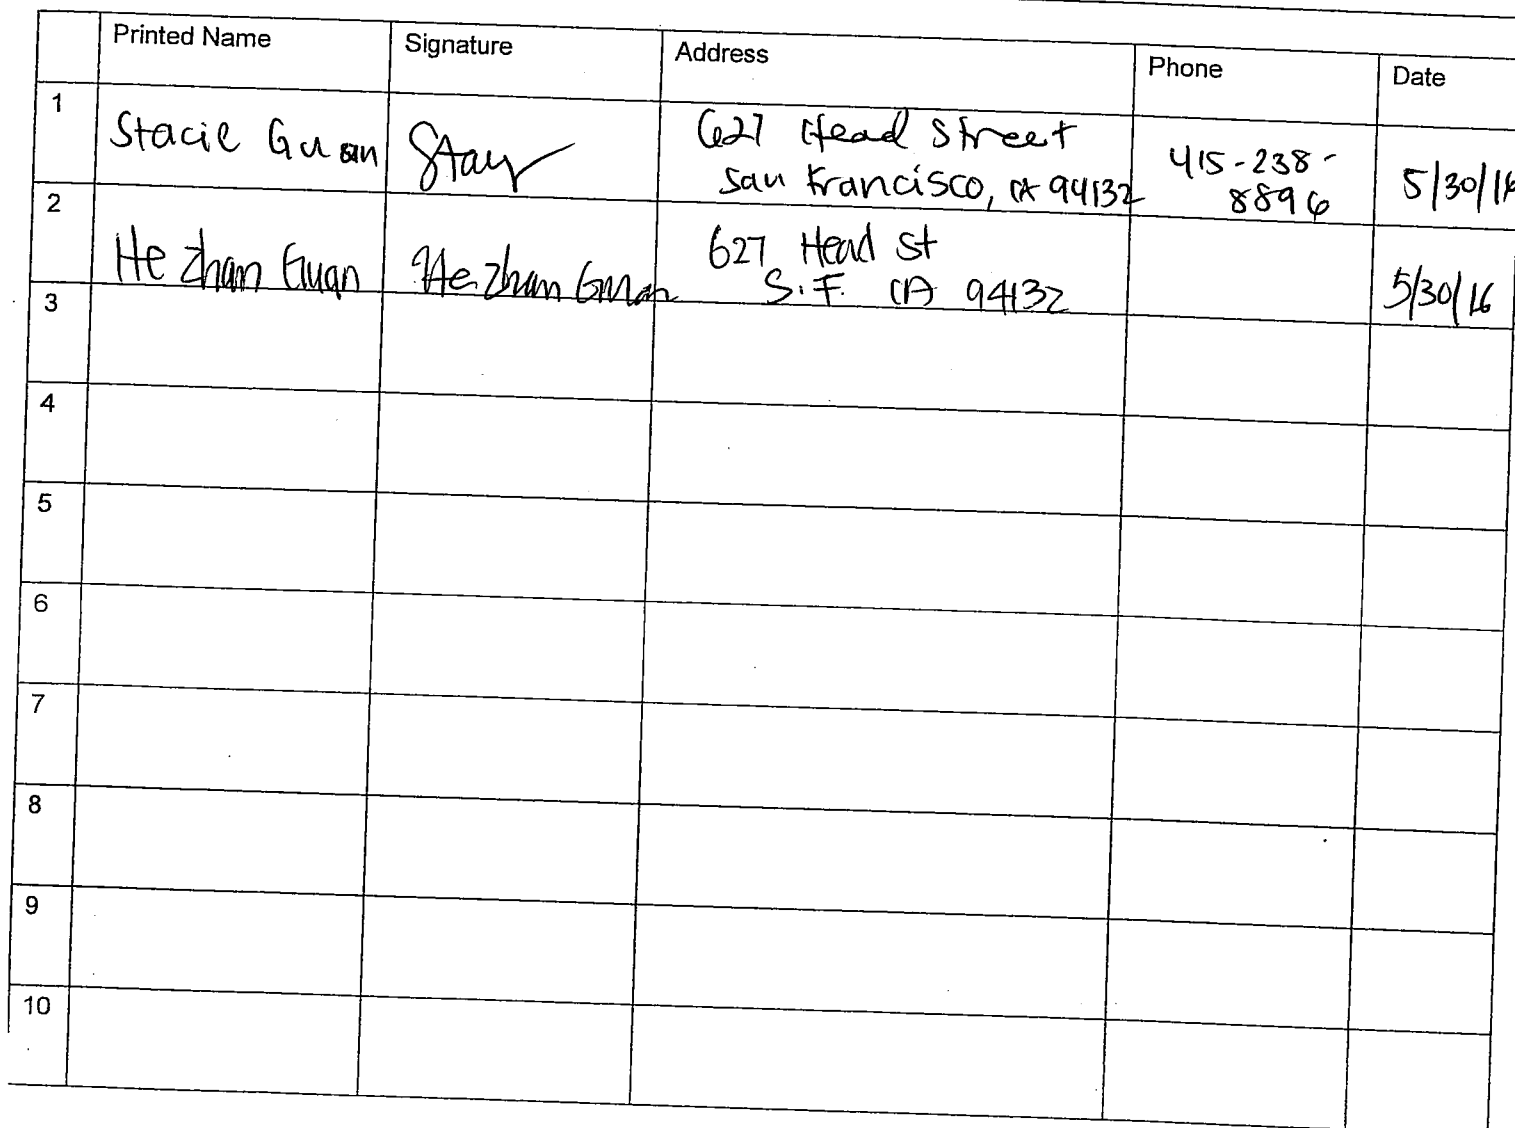 Printed Name Signature Address Phone Date
1 Stacie Guan 627 Head Street 415-238-
San Francisco, CA 94132 8896 5/30/16
2 He Zhan Guan He Zhan Guan 627 Head St
S.F. CA 94132 5/30/16
3
4
5
6
7
8
9
10